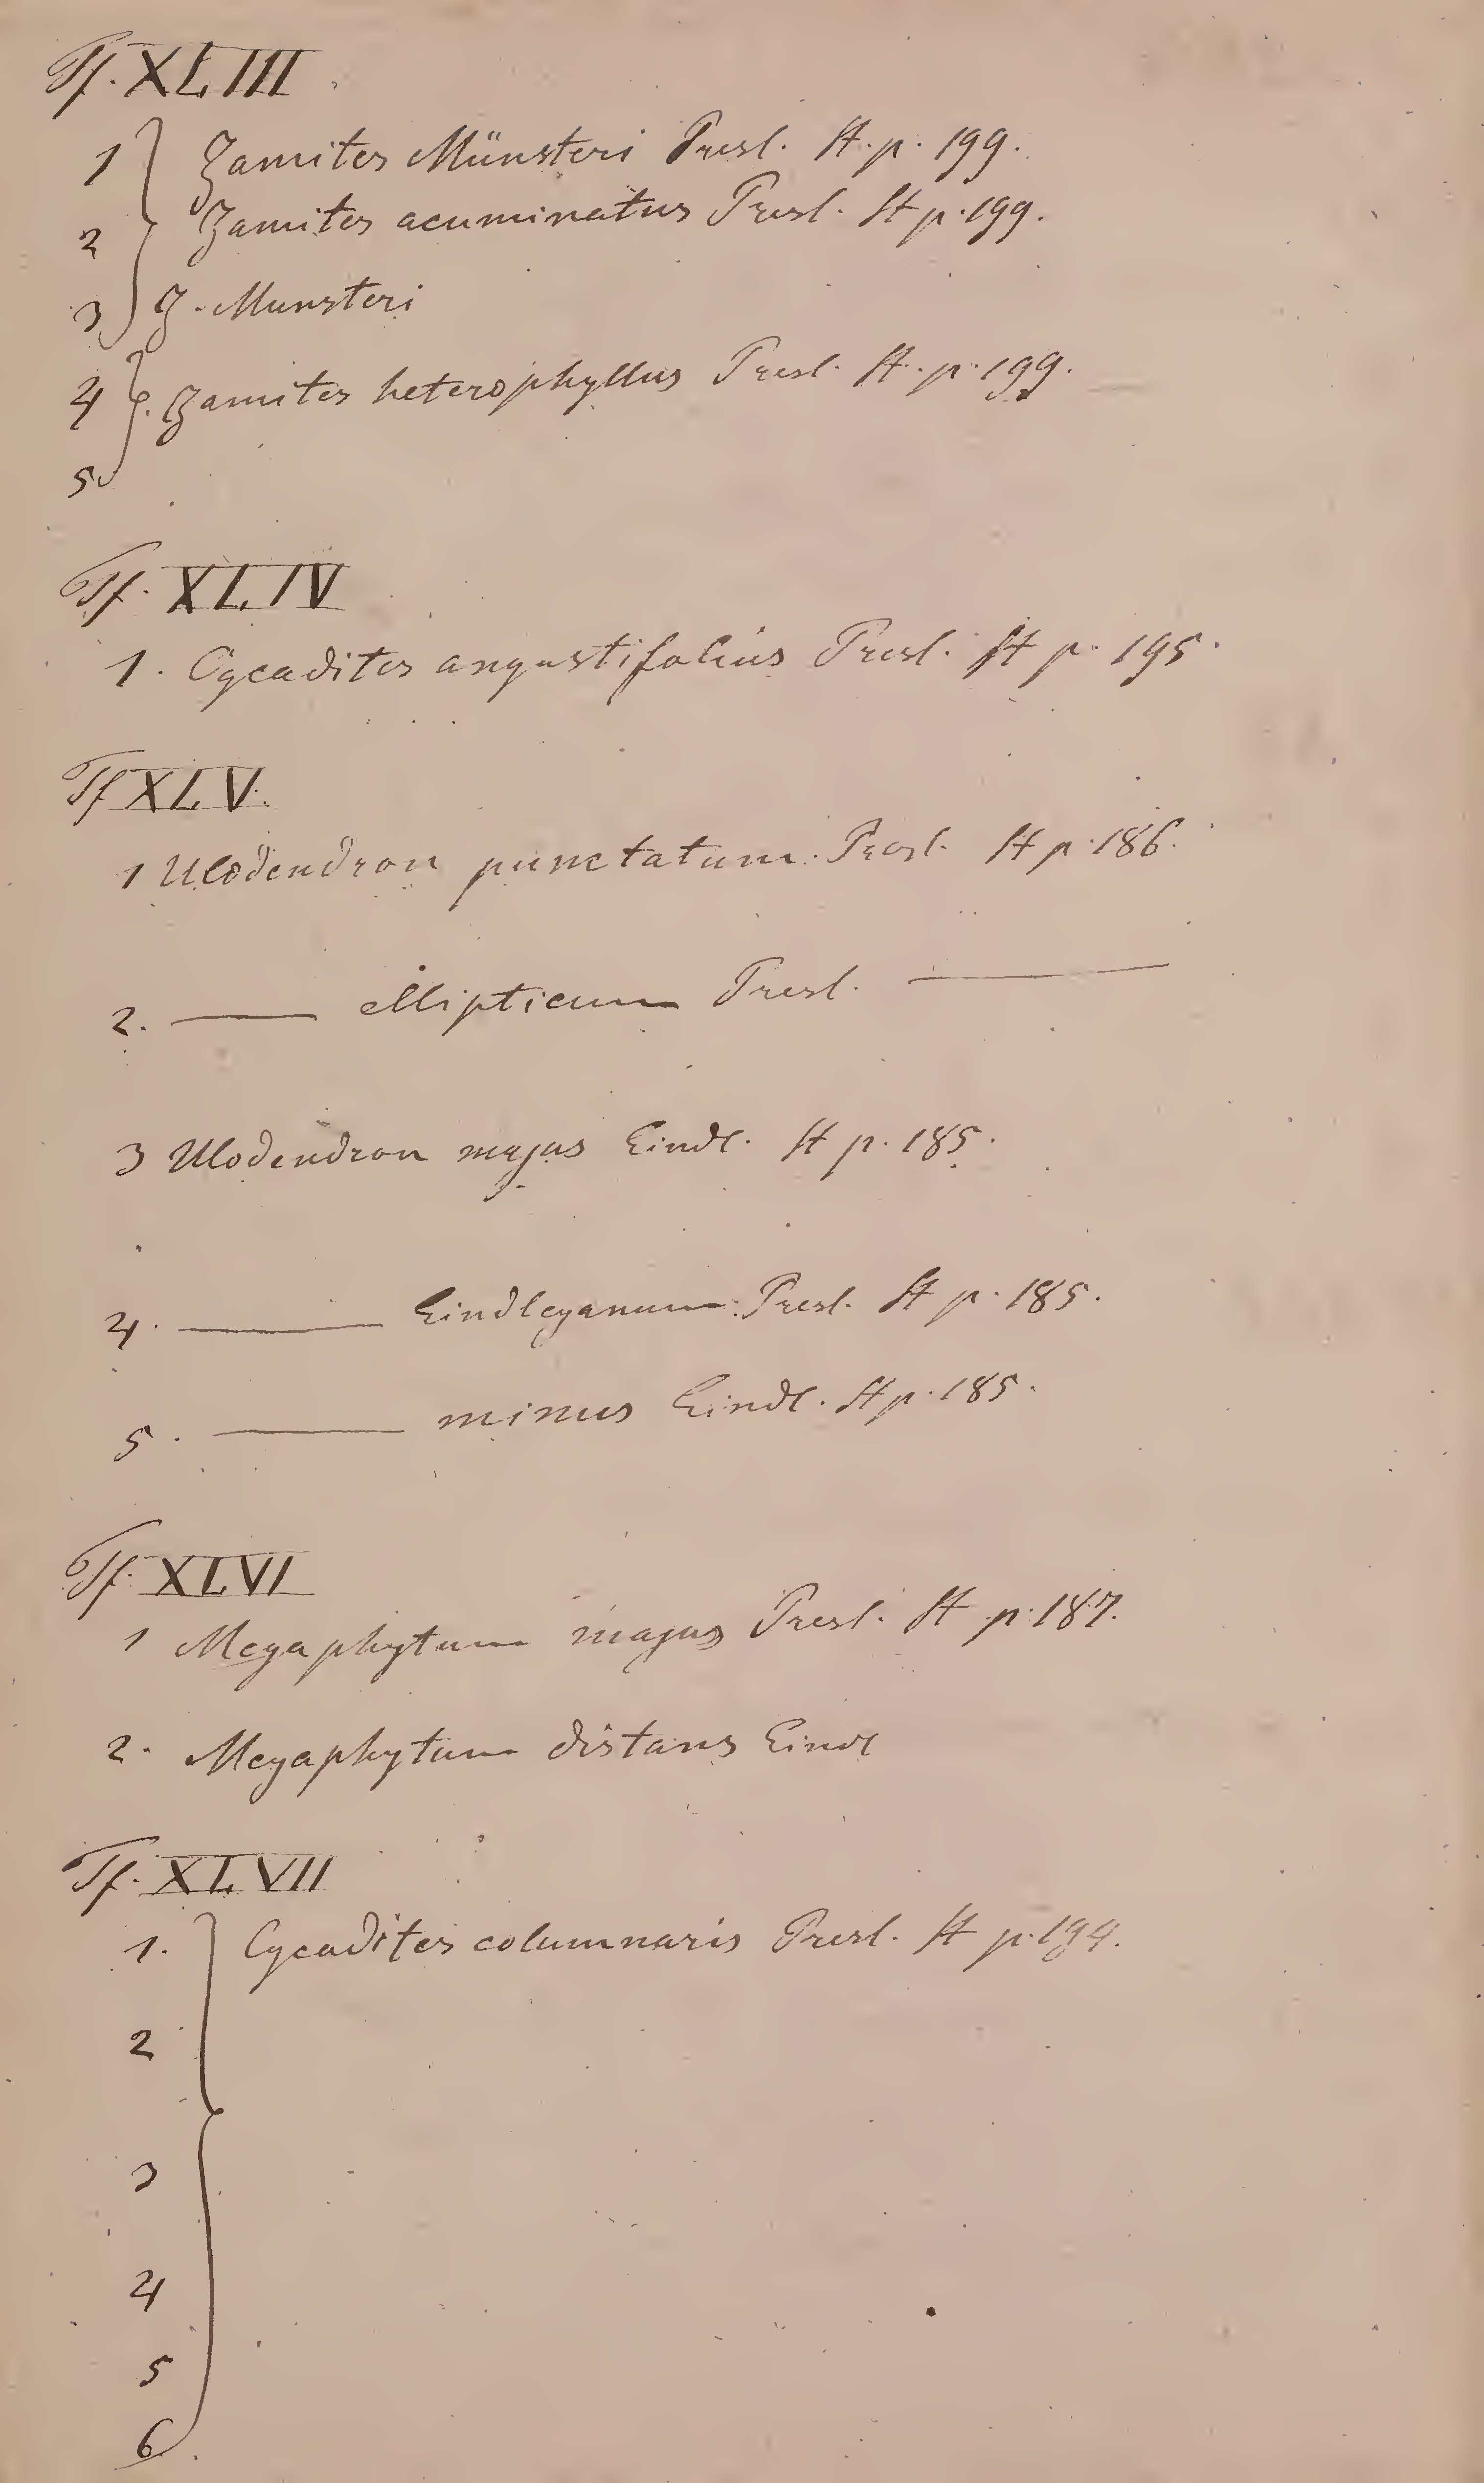 Tf. XLIII
1 Zamites Münsteri Presl. St. p. 199.
2 Zamites acuminatus Presl. St p. 199.
3 Z. Munsteri
4 Zamites heterophyllus Presl. St. p. 199.
5
Tf. XLIV
1. Cycadites angustifolius Presl. St p. 195.
Tf XLV.
1 Ulodendron punctatum Presl. St p. 186.
2. —— ellipticum Presl. ——
3 Ulodendron majus Lindl. St p. 185.
4. —— Lindleyanum Presl. St p. 185.
5. —— minus Lindl. St p. 185.
Tf. XLVI
1 Megaphytum majus Presl. St p. 187.
2. Megaphytum distans Lindl
Tf. XLVII
1. Cycadites columnaris Presl. St p. 194.
2
3
4
5
6